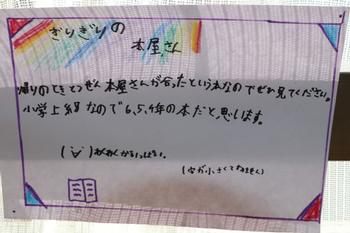 ぎりぎりの
本屋さん
帰りのときとつぜん本屋さんが合ったという本なのでぜひ見てください。
小学上級なので6、5、4年の本だと思います。
わくわくがいっぱい。
(字が小さくてすみません)